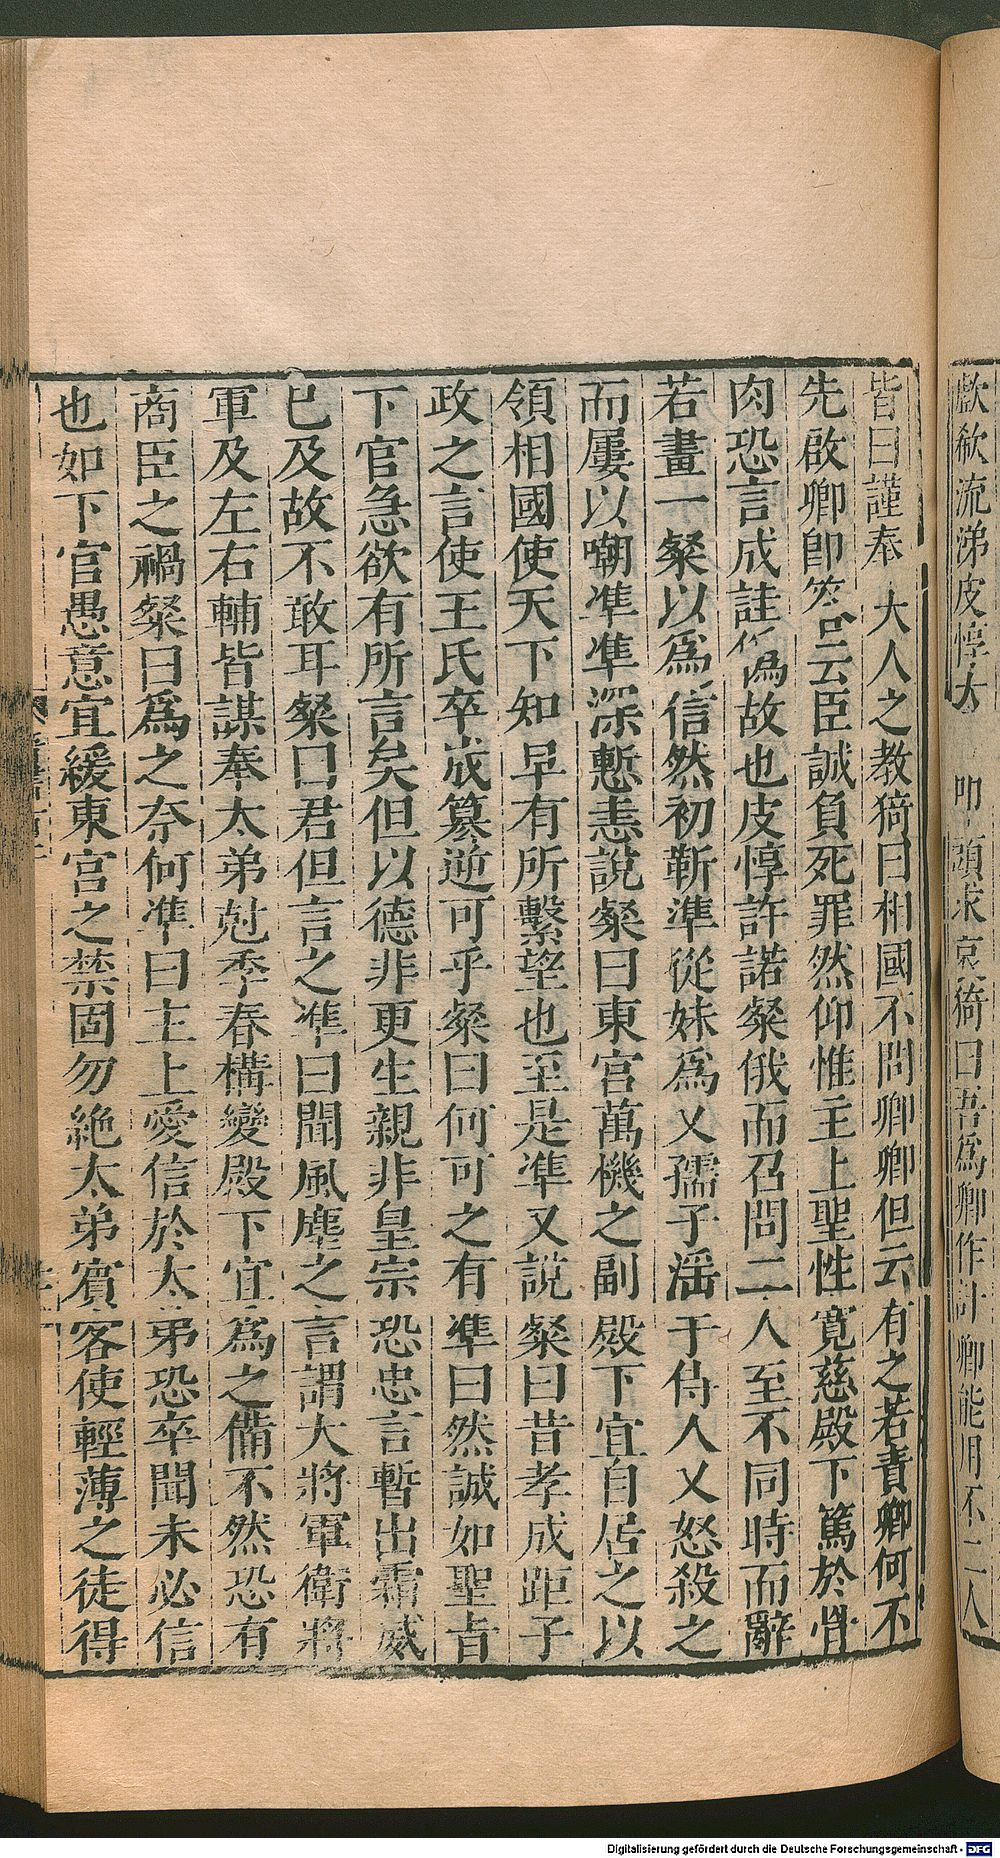 歔欷流涕皮惇大　叩頭求哀猗曰吾爲卿作計卿能用不二人
皆曰謹奉　大人之教猗曰相國不問卿卿但云有之若責卿何不
先啟卿卽答云臣誠負死罪然仰惟主上聖性寬慈殿下篤於骨
肉恐言成詿僞故也皮惇許諾粲俄而召問二人至不同時而辭
若畫一粲以爲信然初靳準從妹爲乂孺子淫于侍人乂怒殺之
而屢以嘲準準深慙恚說粲曰東宮萬機之副殿下宜自居之以
領相國使天下知早有所繫望也至是準又說粲曰昔孝成距子
政之言使王氏卒成篡逆可乎粲曰何可之有準曰然誠如聖旨
下官急欲有所言矣但以德非更生親非皇宗恐忠言暫出霜威
已及故不敢耳粲曰君但言之準曰聞風塵之言謂大將軍衛將
軍及左右輔皆謀奉太弟尅季春構變殿下宜爲之備不然恐有
商臣之禍粲曰爲之奈何準曰主上愛信於太弟恐卒聞未必信
也如下官愚意宜緩東宮之禁固勿絶太弟賓客使輕薄之徒得
Digitalisierung gefördert durch die Deutsche Forschungsgemeinschaft - DFG